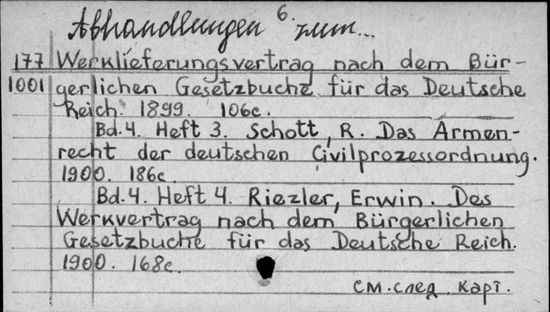 6.
Abhandlungen zum...
177 Werklieferungsvertrag nach dem Bür-
1001 gerlichen Gesetzbuche für das Deutsche
Reich. 1899. 106c.
Bd. 4. Heft 3. Schott, R. Das Armen-
recht der deutschen Civilprozessordnung.
1900. 186c.
Bd. 4. Heft 4. Riezler, Erwin. Des
Werkvertrag nach dem Bürgerlichen
Gesetzbuche für das Deutsche Reich.
1900. 168c.
См. след. карт.